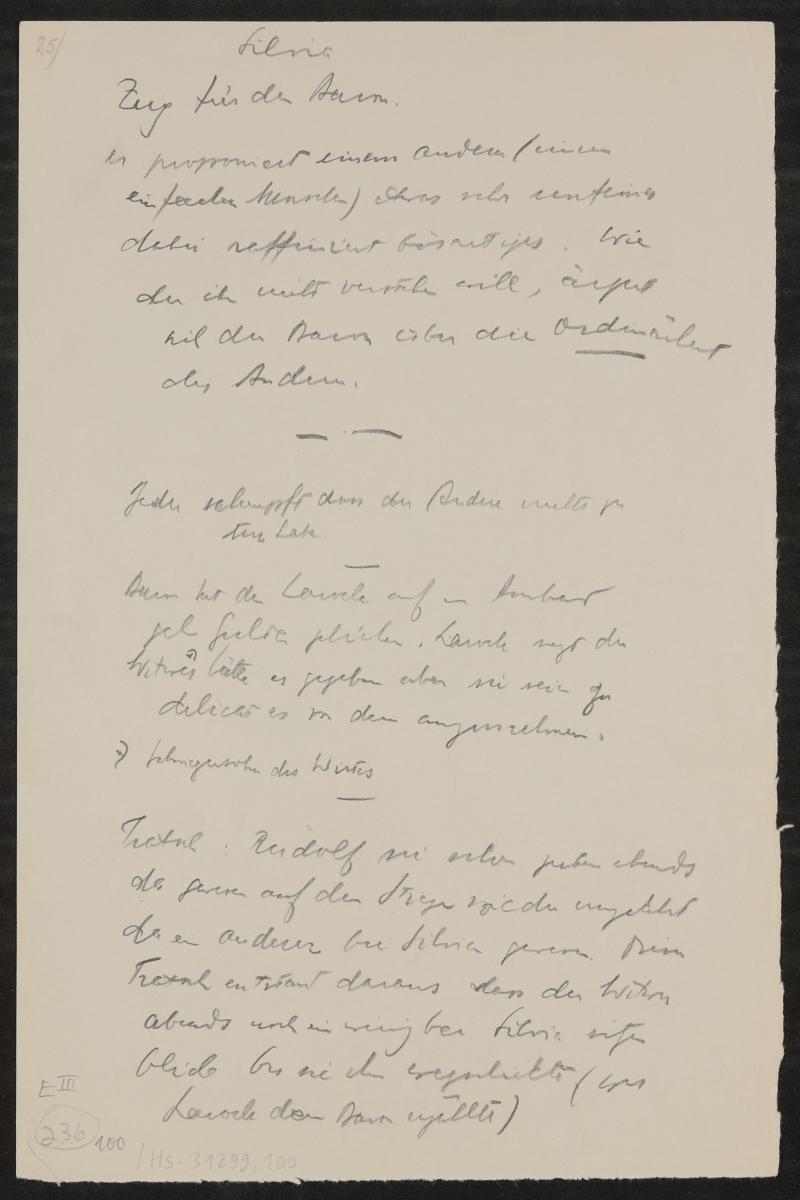 25/
Silvia
Zug für den Baron.
er proponiert einem andern (einen
einfachen Menschen) etwas sehr unfeines
dabei raffiniert bösartiges. Wie
der ihn nicht verstehen will, ärgert
sich der Baron über die Ordinärheit
des Andern.
Jeder schimpft dass der Andere nichts ge
tan habe
Baron hat den Laroche auf ein Armband
geld geliehen. Laroche sagt der
Witwer hätte es gegeben aber sie seien zu
delicat es von dem anzunehmen.
Schwiegersohn des Wirtes
Tratsch: Rudolf sei schon gestern abends
da gewesen auf der Stiege wieder umgekehrt
da ein anderer bei Silvia gewesen. Dieser
Tratsch entstand daraus dass der Witwer
abends noch ein wenig bei Silvia sitzen
blieb bis sie ihn wegschickte (was
Laroche dem Baron erzählte)
E III
236
100
/Hs-31299,100